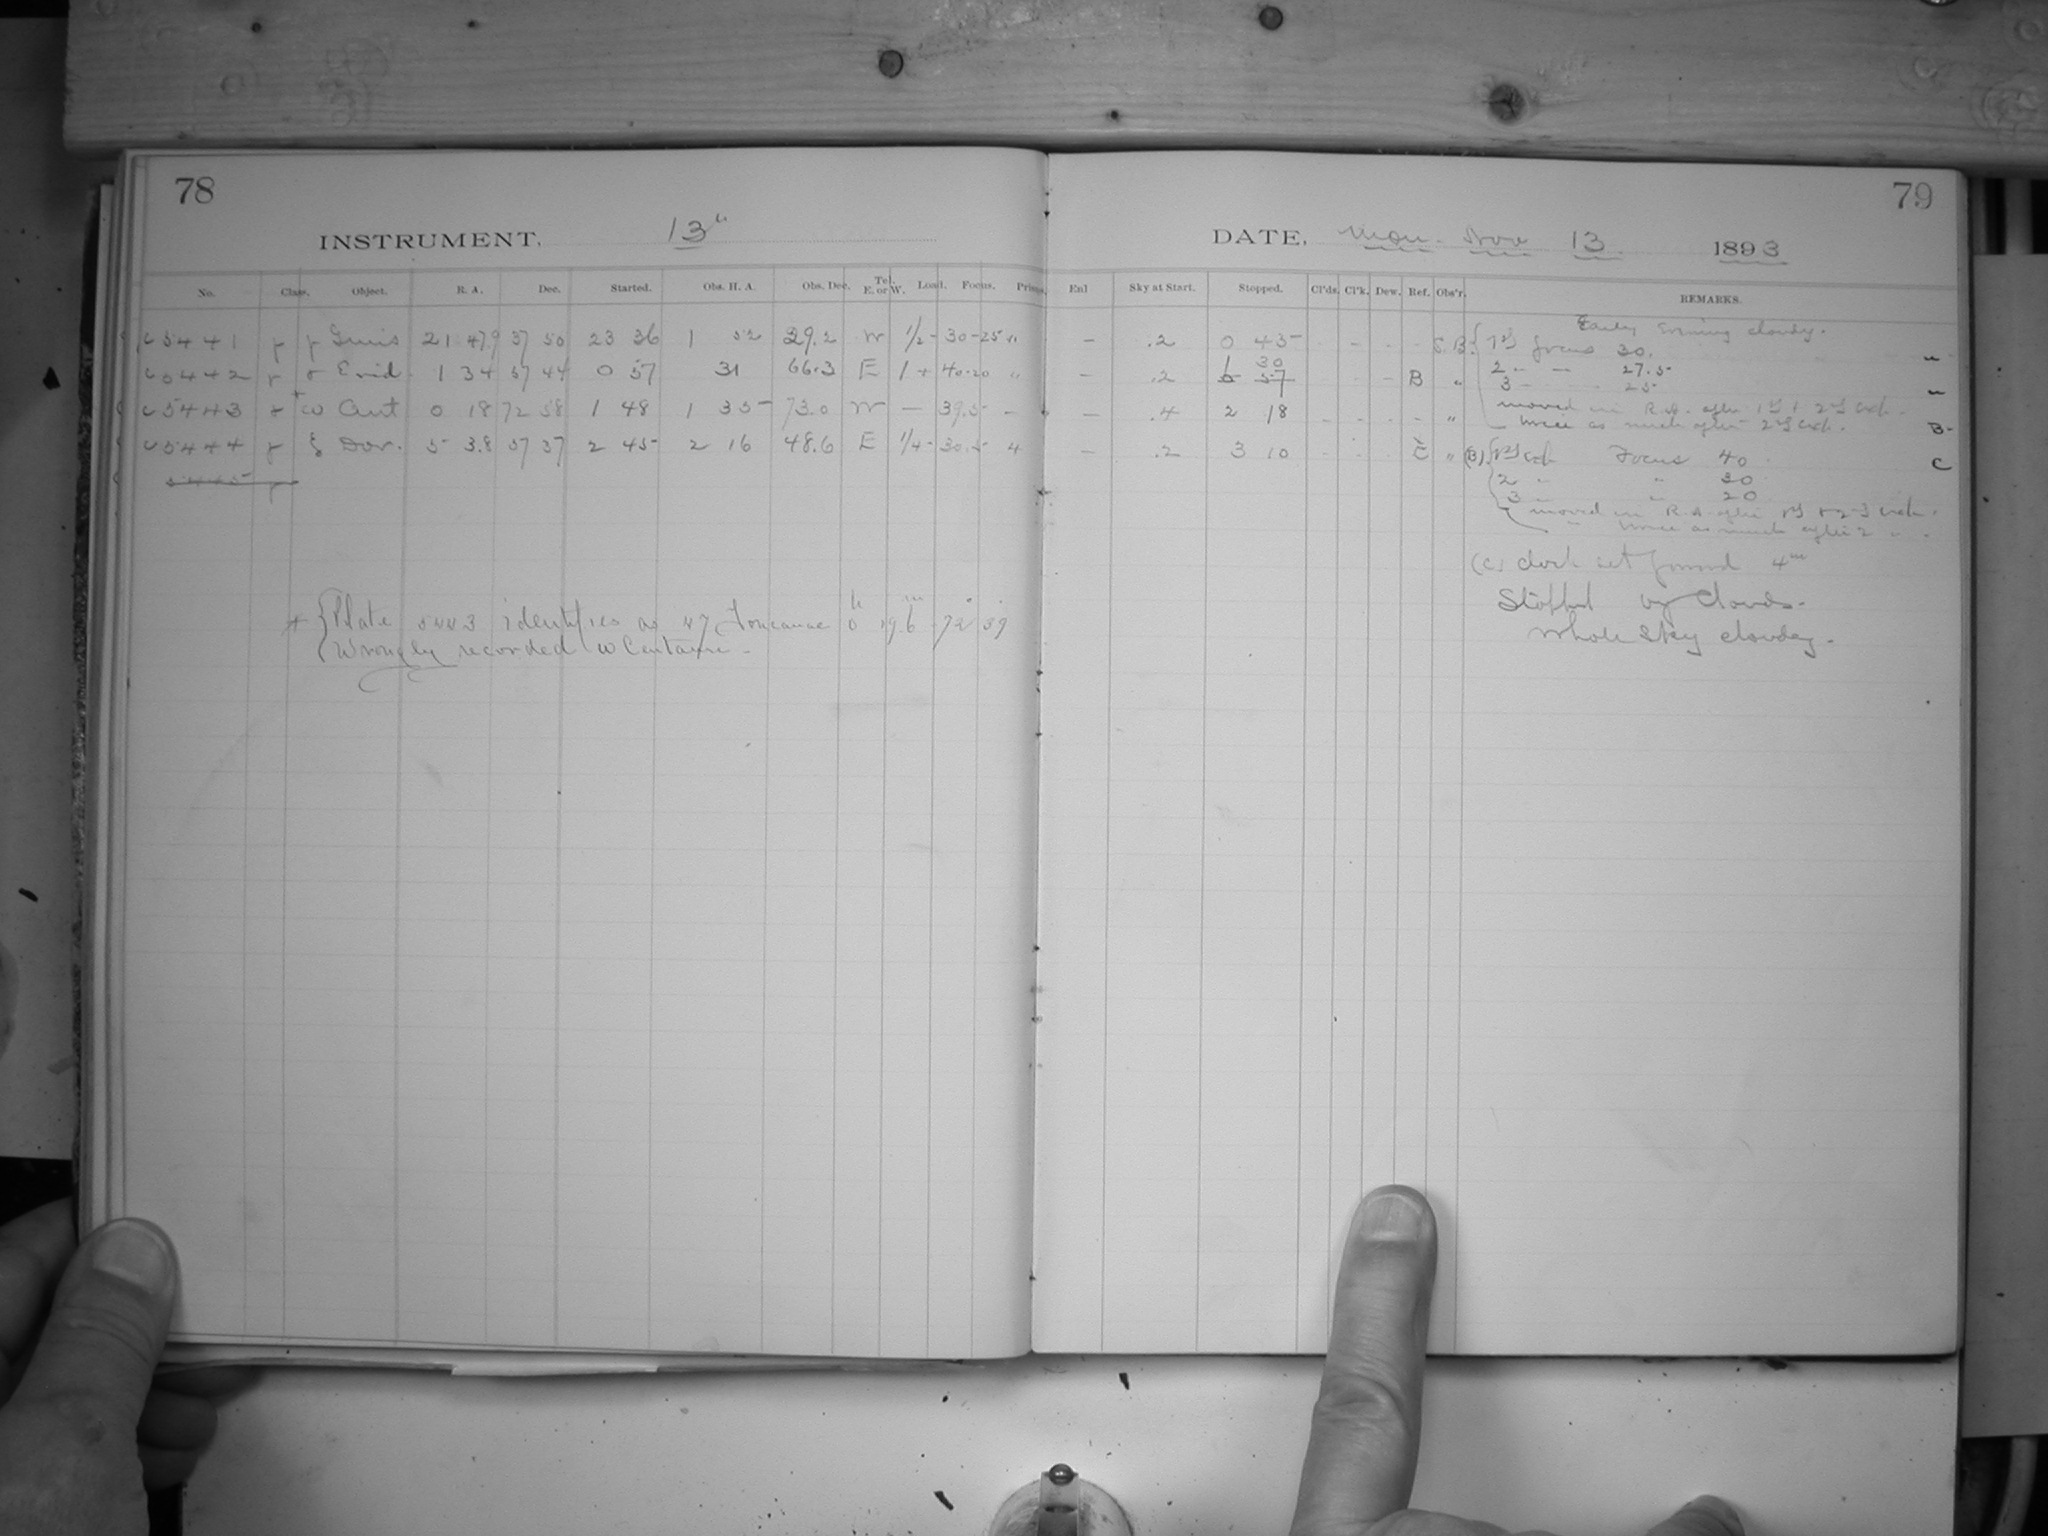 78
INSTRUMENT, 13"
No. Class. Object. R. A. Dec. Started. Obs. H. A. Obs. Dec. Tel. E. or W. Load. Focus. Prisms.
5441 γ Gruis 21 47.9 37 50 23 36 1 52 39.2 W 1/2- 30-25 "
5442 Erid. 1 34 57 44 0 57 31 66.3 E 1+ 40-20 "
5443 + ω Cent 0 18 72 58 1 48 1 35 73.0 W — 39.5 —
5444 ξ Dor. 5 3.8 57 37 2 45 2 16 48.6 E 1/4- 30.5 4
5445
+ Plate 5443 identifies as 47 Toucanae 0h 19.6m -72° 39
Wrongly recorded ω Centauri -
79
DATE, Mon. Nov 13 1893
Enl Sky at Start. Stopped. Cl'ds. Cl'k. Dew. Ref. Obs'r. REMARKS.
Early Evening cloudy.
— .2 0 45 - - - - 1st focus 30.
2 - - 27.5
— .2 1 30 0 57 - - - B "
3 - - 25
moved in R.A. after 1st + 2d exp.
— .4 2 18 - - - - " twice as much after 2d exp. B-
— .2 3 10 - - - C " (B) 1st exp Focus 40 C
2 " " 30
3 " " 20
moved in R.A. after 1st + 2d exp.
" twice as much after 2 " "
(C) clock set forward 4m
Stopped by Clouds-
Whole Sky cloudy-